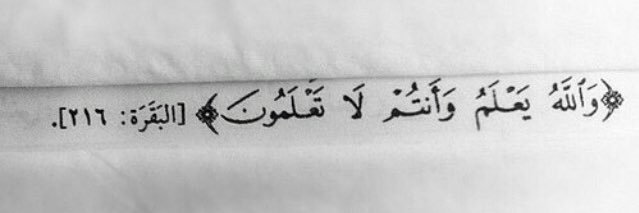 ﴿وَٱللَّهُ يَعْلَمُ وَأَنتُمْ لَا تَعْلَمُونَ﴾ [البَقَرَة: ٢١٦].